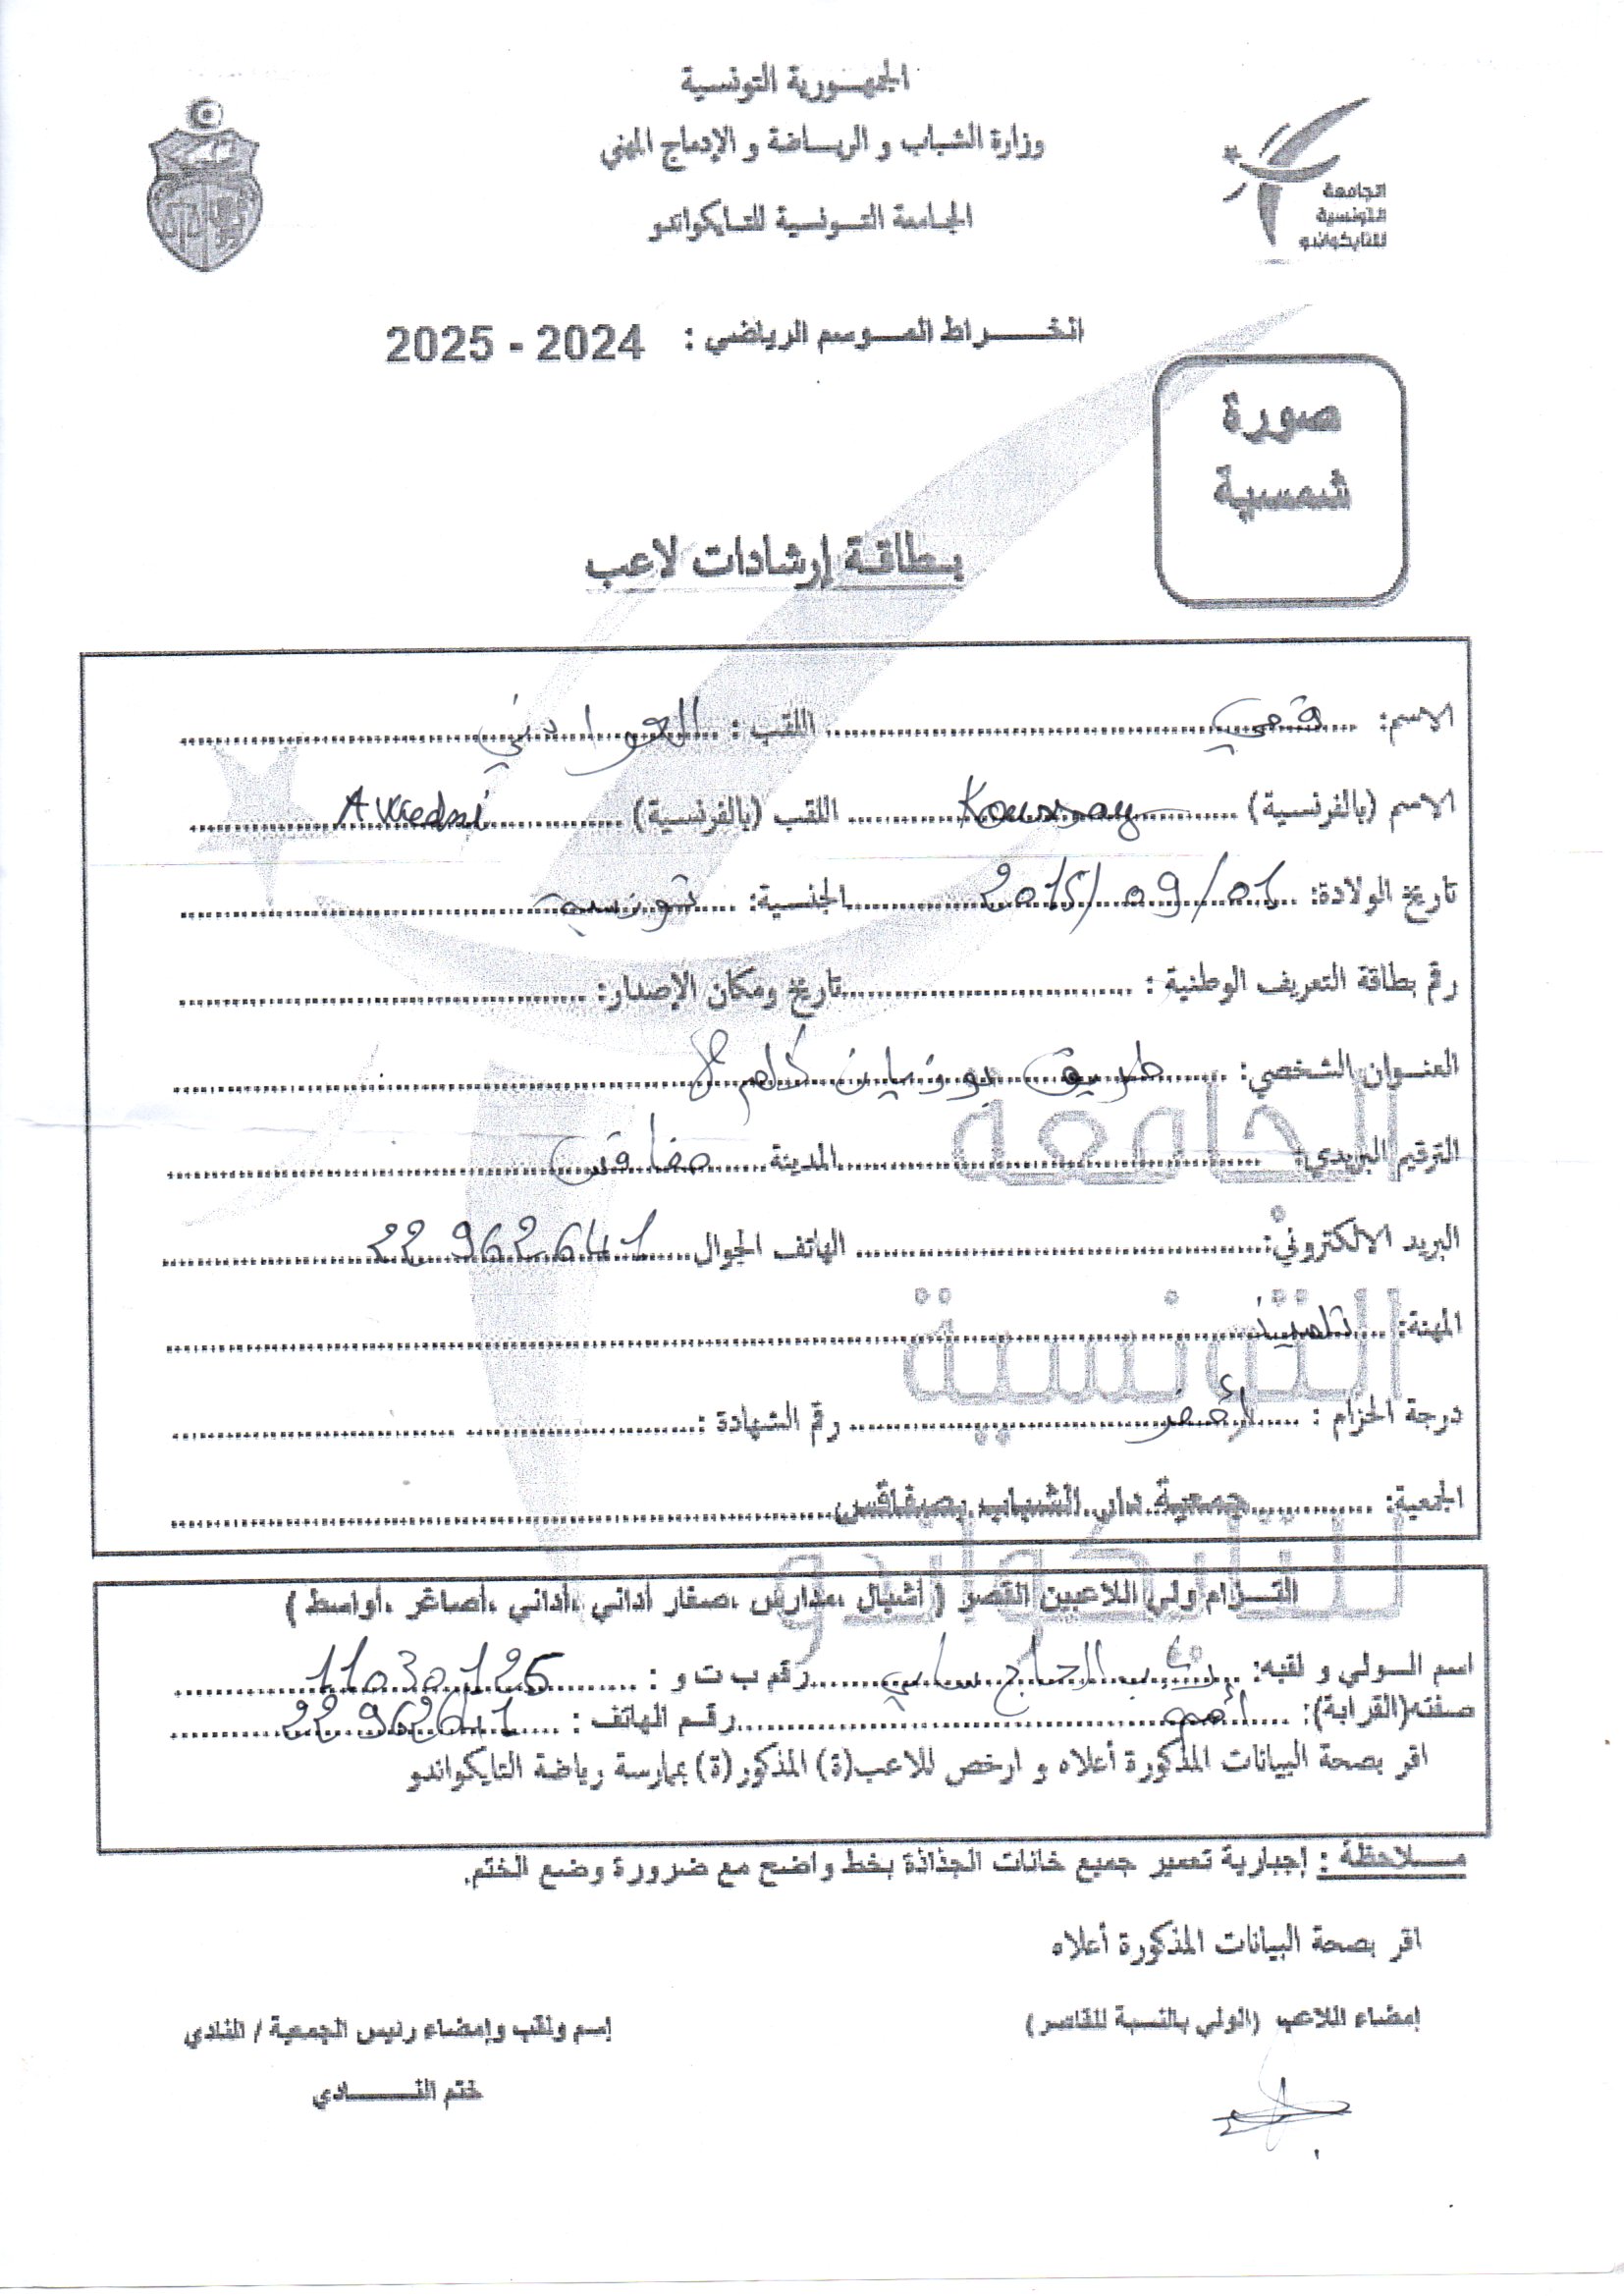 الجمهورية التونسية
وزارة الشباب و الرياضة و الإدماج المهني
الجامعة التونسية للتايكواندو
الجامعة
التونسية
للتايكواندو
انخراط الموسم الرياضي : 2024 - 2025
صورة
شمسية
بطاقة إرشادات لاعب
الاسم: قصي اللقب : العوادني
الاسم (بالفرنسية) Koussay اللقب (بالفرنسية)
تاريخ الولادة: 2015/09/01 الجنسية: تونسية
رقم بطاقة التعريف الوطنية : تاريخ ومكان الإصدار:
العنوان الشخصي: طريق بوزيان كلم 8
الترقيم البريدي: المدينة صفاقس
البريد الالكتروني: الهاتف الجوال 22 962 641
المهنة: تلميذ
درجة الحزام : أخضر رقم الشهادة :
الجمعية: جمعية دار الشباب بصفاقس
الجامعة
التونسية
للتايكواندو
التزام ولي اللاعبين القصر ( أشبال ،مدارس ،صغار أداني ،أداني ،أصاغر ،أواسط )
اسم الولي و لقبه: الحاج ساسي رقم ب ت و : 11030125
صفته(القرابة): أمه رقم الهاتف : 22 962641
اقر بصحة البيانات المذكورة أعلاه و ارخص للاعب(ة) المذكور(ة) بممارسة رياضة التايكواندو
ملاحظة : إجبارية تعمير جميع خانات الجذاذة بخط واضح مع ضرورة وضع الختم.
اقر بصحة البيانات المذكورة أعلاه
إمضاء اللاعب (الولي بالنسبة للقاصر) إسم ولقب وإمضاء رئيس الجمعية / النادي
ختم النادي